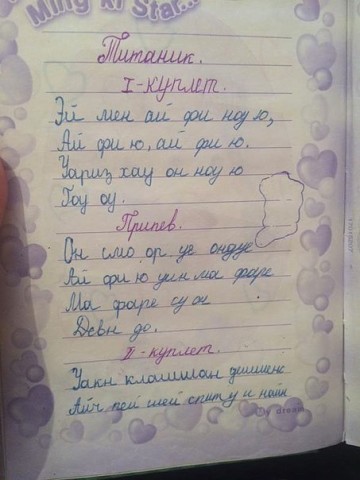 Ming xil Star...
Титаник.
I-куплет.
Эй мен ай фи ноу ю,
Ай фи ю, ай фи ю.
Уариз хау он ноу ю
Гоу оу.
Припев.
Он смо ор уе ондуе
Ай фи ю уин ма фаре
Ма фаре су он
Девн до.
II-куплет.
Уакн клашилан
Айч пей шей спиту и найн
My dream